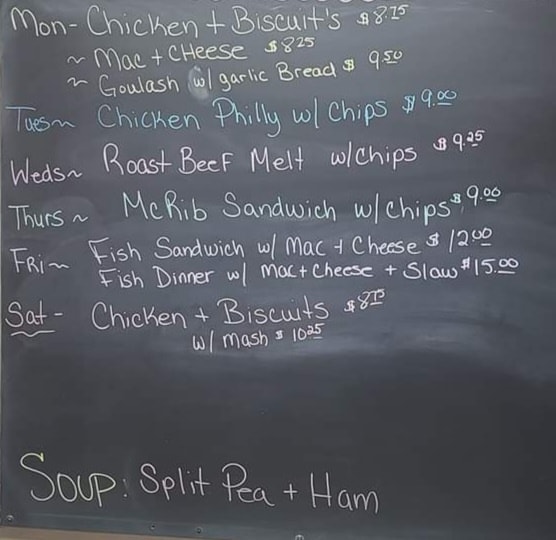 Mon- Chicken + Biscuit's $8.75
~ Mac + CHeese $8.25
~ Goulash w/ garlic Bread $9.50
Tues~ Chicken Philly w/ Chips $9.00
Weds~ Roast Beef Melt w/chips $9.25
Thurs~ McRib Sandwich w/Chips $9.00
FRi~ Fish Sandwich w/ Mac + Cheese $12.00
Fish Dinner w/ Mac + Cheese + Slaw $15.00
Sat- Chicken + Biscuits $8.75
w/ Mash $10.25
Soup: Split Pea + Ham